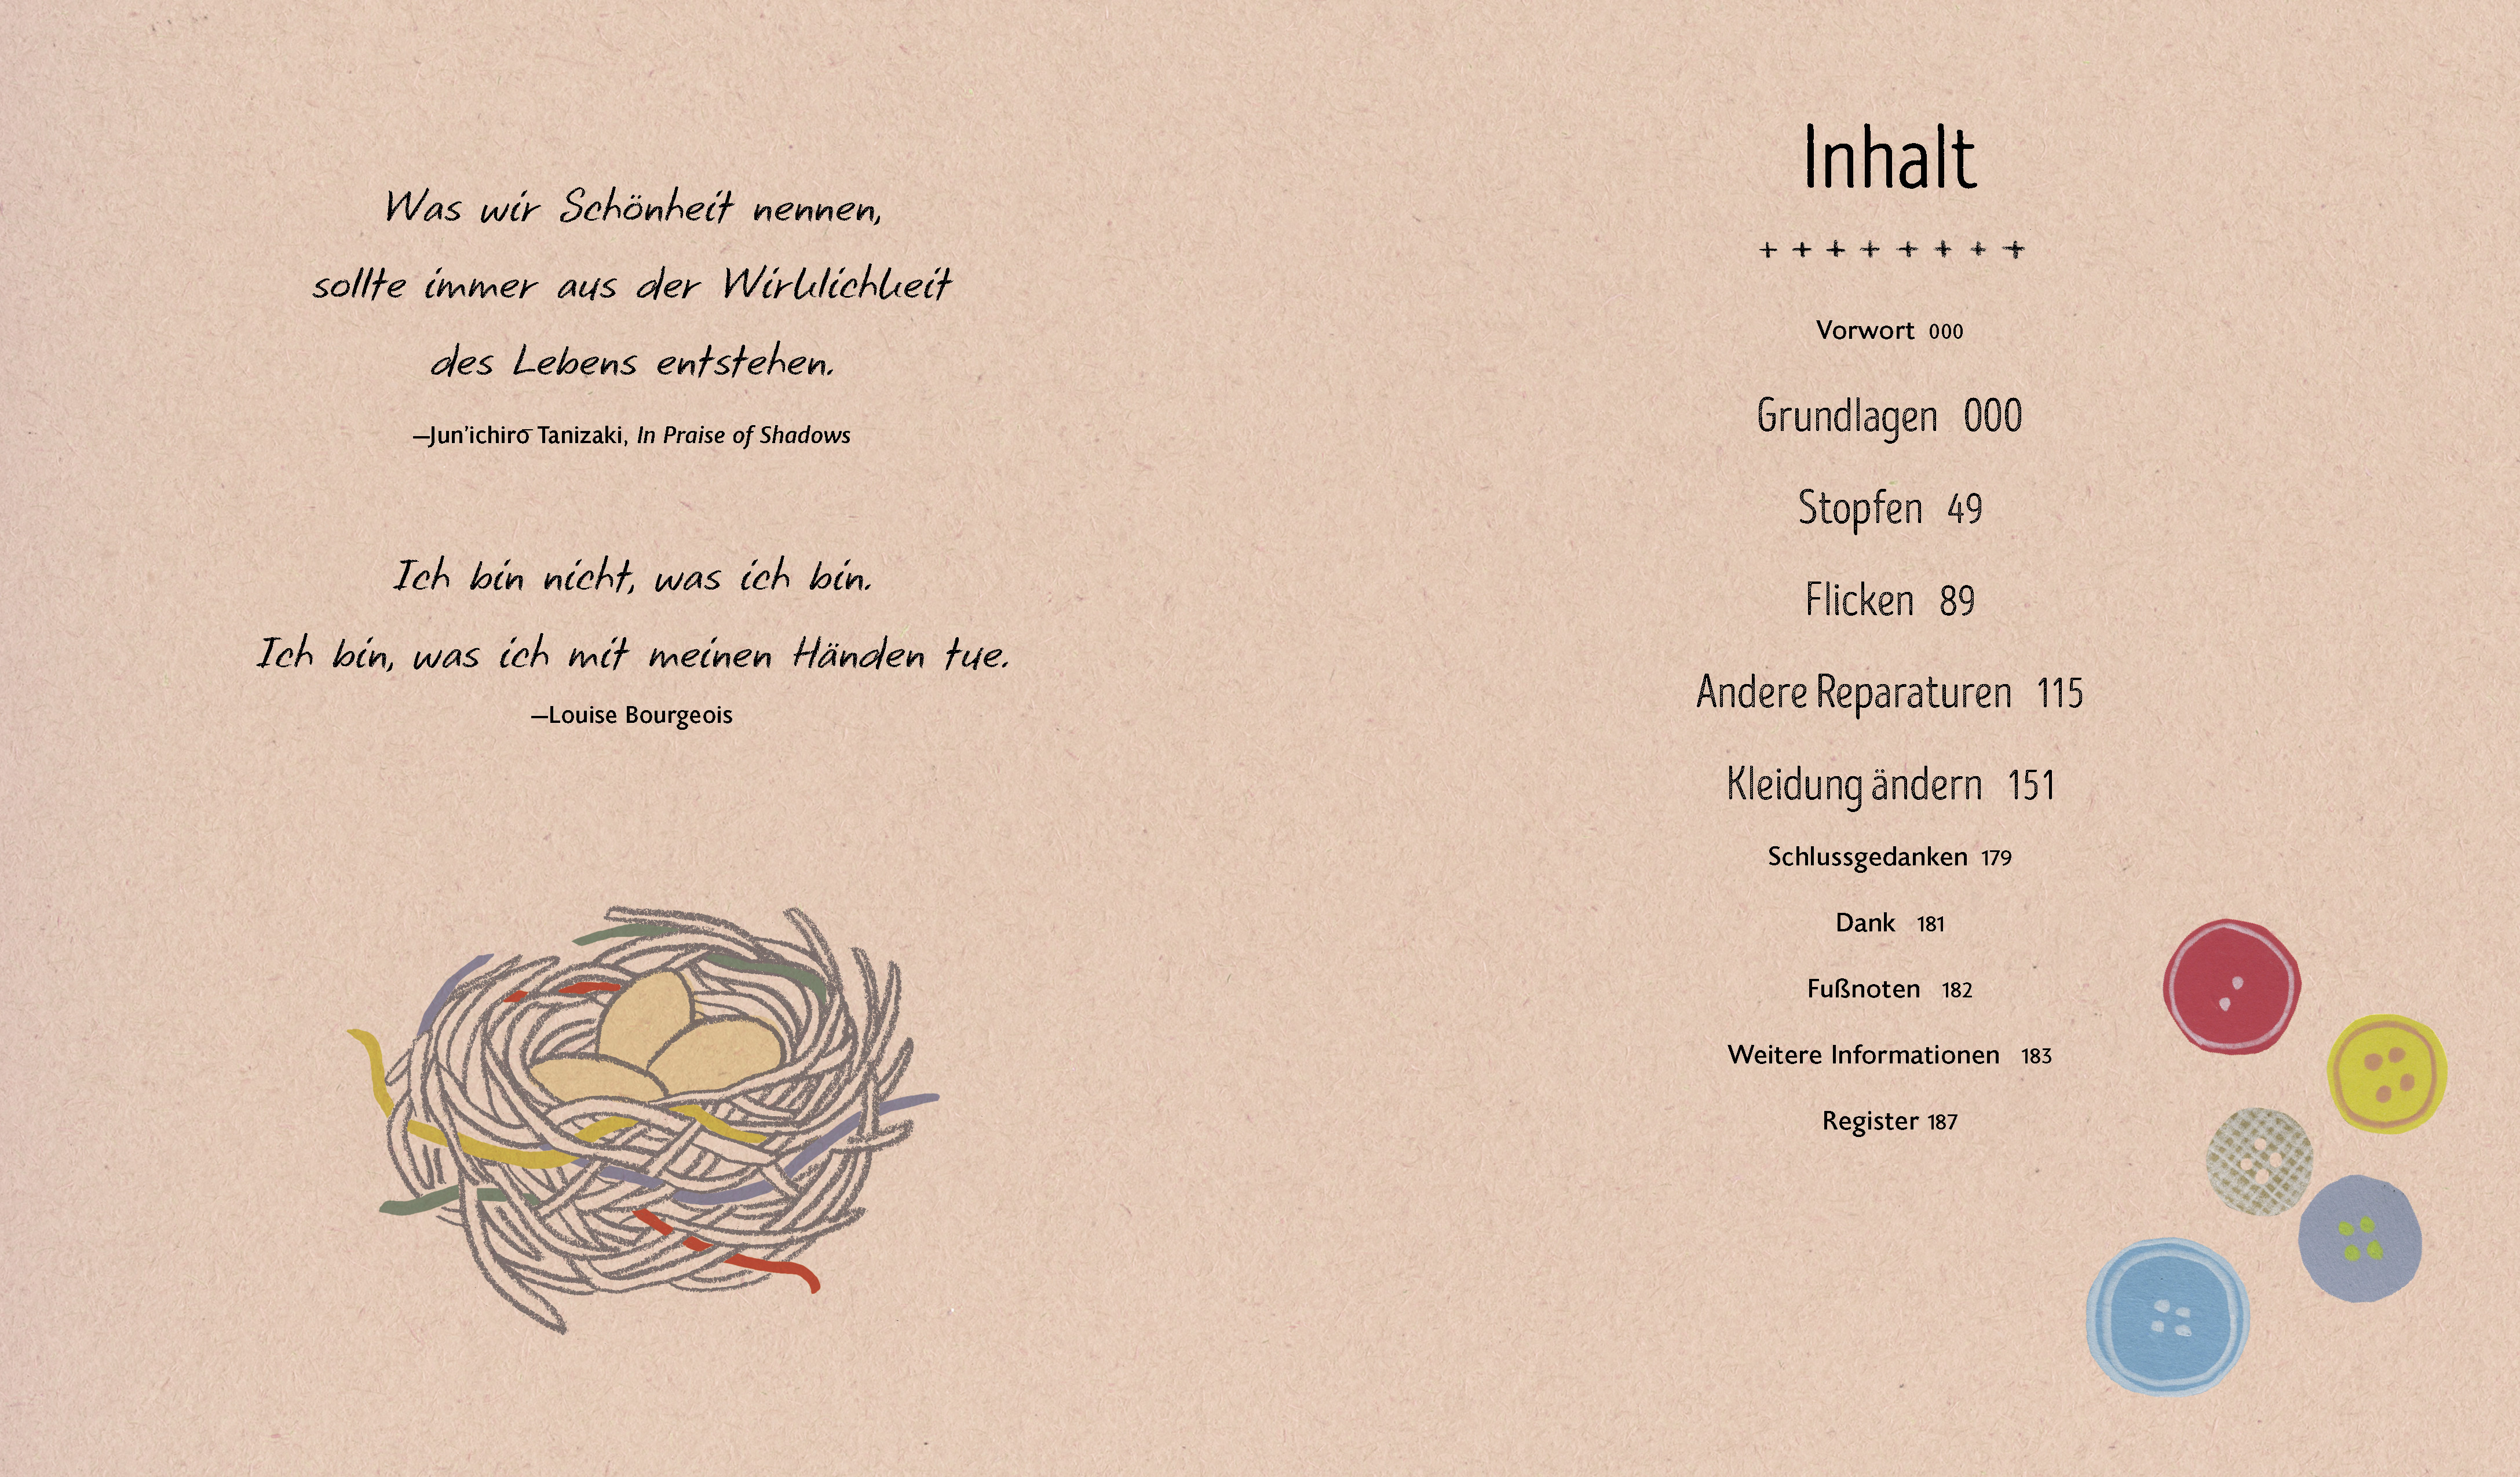 Was wir Schönheit nennen,
sollte immer aus der Wirklichkeit
des Lebens entstehen.
—Jun’ichirō Tanizaki, In Praise of Shadows
Ich bin nicht, was ich bin.
Ich bin, was ich mit meinen Händen tue.
—Louise Bourgeois
Inhalt
+ + + + + + + +
Vorwort 000
Grundlagen 000
Stopfen 49
Flicken 89
Andere Reparaturen 115
Kleidung ändern 151
Schlussgedanken 179
Dank 181
Fußnoten 182
Weitere Informationen 183
Register 187